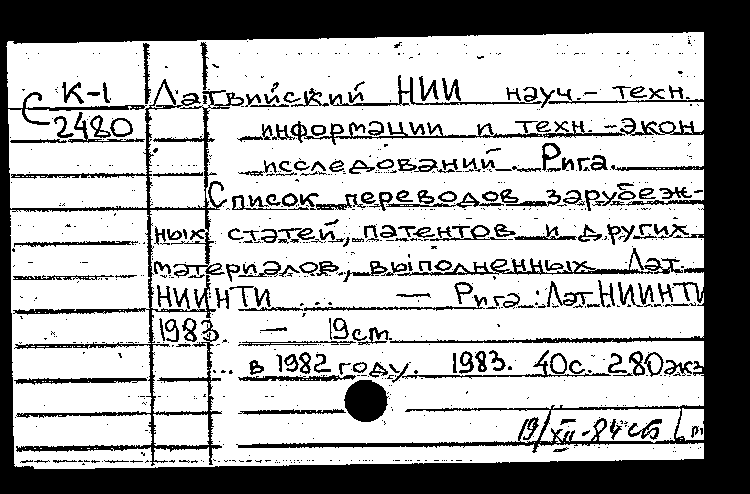 С К-1
2480
Латвийский НИИ науч.- техн.
информации и техн.-экон
исследований. Рига.
Список переводов зарубеж-
ных статей, патентов и других
материалов, выполненных Лат.
НИИНТИ ... — Рига : ЛатНИИНТИ
1983. — 19см
... в 1982 году. 1983. 40с. 280экз
19/XII-84